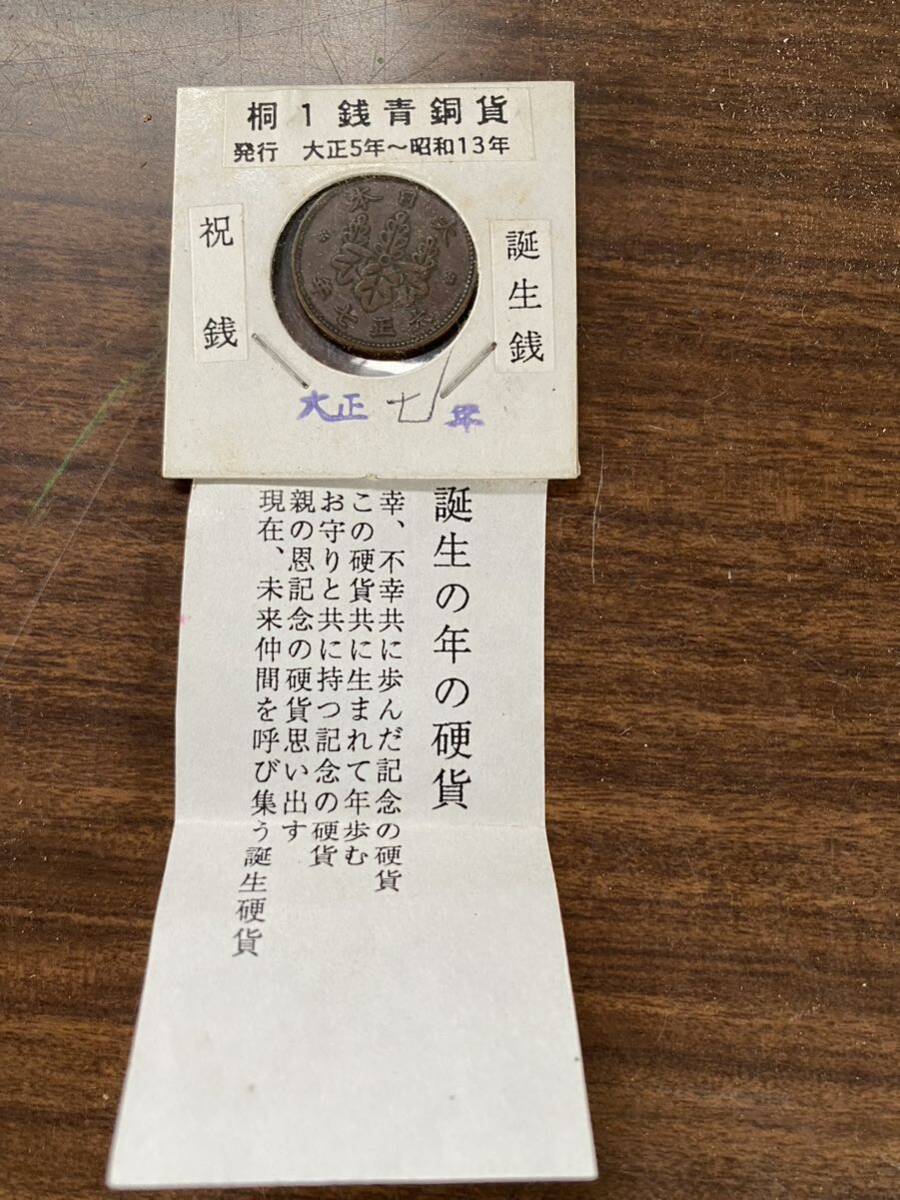 桐1銭青銅貨
発行 大正5年～昭和13年
誕生銭
祝銭
大日本
大正七年
大正七年
誕生の年の硬貨
幸、不幸共に歩んだ記念の硬貨
この硬貨共に生まれて年歩む
お守りと共に持つ記念の硬貨
親の恩記念の硬貨思い出す
現在、未来仲間を呼び集う誕生硬貨